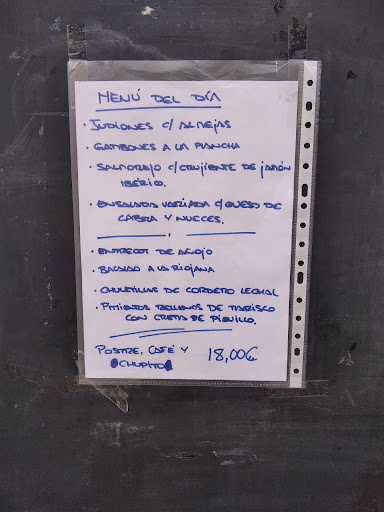 MENÚ DEL DÍA
· JUDIONES C/ ALMEJAS
· GAMBONES A LA PLANCHA
· SALMOREJO C/ CRUJIENTE DE JAMÓN
IBÉRICO.
· ENSALADA VARIADA C/ QUESO DE
CABRA Y NUECES.
· ENTRECOT DE AÑOJO
· BACALAO A LA RIOJANA
· CHULETILLAS DE CORDERO LECHAL
· PIMIENTOS RELLENOS DE MARISCO
CON CREMA DE PIQUILLO.
POSTRE, CAFÉ Y 18,00€
CHUPITO